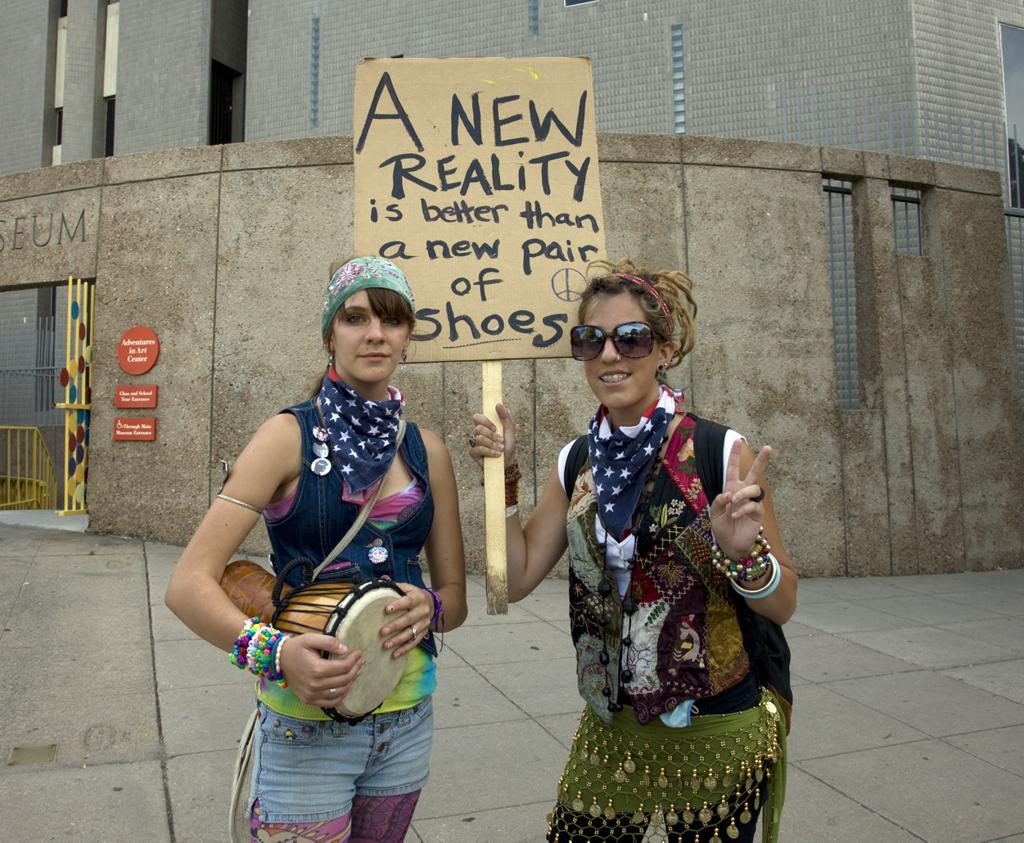 A NEW
REALITY
is better than
a new pair
of
shoes
SEUM
Adventures
in Art
Center
Class and School
Tour Entrance
Through Main
Museum Entrance